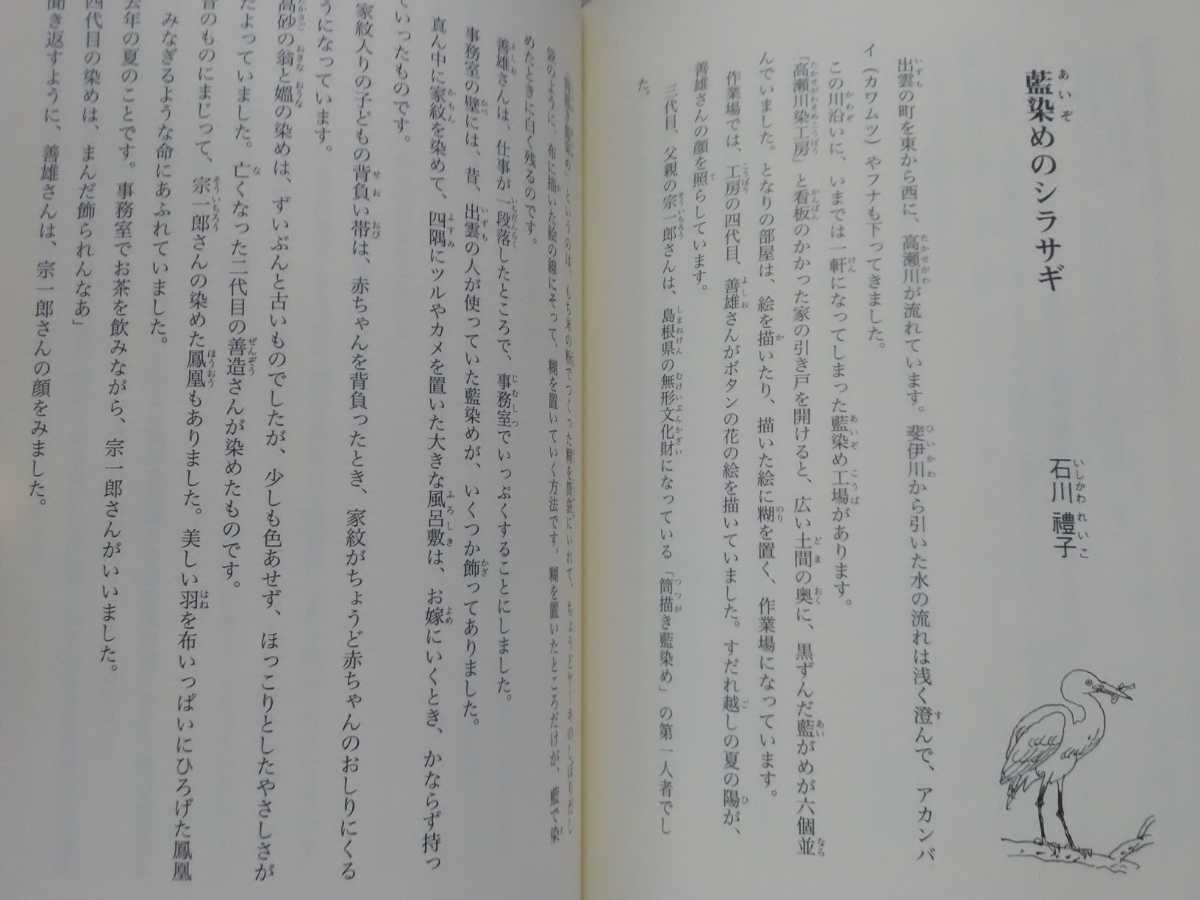 藍染めのシラサギ
石川 禮子
出雲の町を東から西に、高瀬川が流れています。斐伊川から引いた水の流れは浅く澄んで、アカンバ
イ(カワムツ)やフナも下ってきました。
この川沿いに、いまでは一軒になってしまった藍染め工場があります。
「高瀬川染工房」と看板のかかった家の引き戸を開けると、広い土間の奥に、黒ずんだ藍がめが六個並
んでいました。となりの部屋は、絵を描いたり、描いた絵に糊を置く、作業場になっています。
作業場では、工房の四代目、善雄さんがボタンの花の絵を描いていました。すだれ越しの夏の陽が、
善雄さんの顔を照らしています。
三代目、父親の宗一郎さんは、島根県の無形文化財になっている「筒描き藍染め」の第一人者でし
た。
というのは、もち米の粉でつくった糊を筒袋にいれて、
袋のように、布に描いた絵の線にそって、糊を置いていく方法です。糊を置いたところだけが、藍で染
めたときに白く残るのです。
善雄さんは、仕事が一段落したところで、事務室でいっぷくすることにしました。
事務室の壁には、昔、出雲の人が使っていた藍染めが、いくつか飾ってありました。
真ん中に家紋を染めて、四隅にツルやカメを置いた大きな風呂敷は、お嫁にいくとき、かならず持っ
ていったものです。
家紋入りの子どもの背負い帯は、赤ちゃんを背負ったとき、家紋がちょうど赤ちゃんのおしりにくる
うになっています。
高砂の翁と媼の染めは、ずいぶんと古いものでしたが、少しも色あせず、ほっこりとしたやさしさが
たよっていました。亡くなった二代目の善造さんが染めたものです。
昔のものにまじって、宗一郎さんの染めた鳳凰もありました。美しい羽を布いっぱいにひろげた鳳凰
みなぎるような命にあふれていました。
去年の夏のことです。事務室でお茶を飲みながら、宗一郎さんがいいました。
四代目の染めは、まんだ飾られんなあ」
聞き返すように、善雄さんは、宗一郎さんの顔をみました。